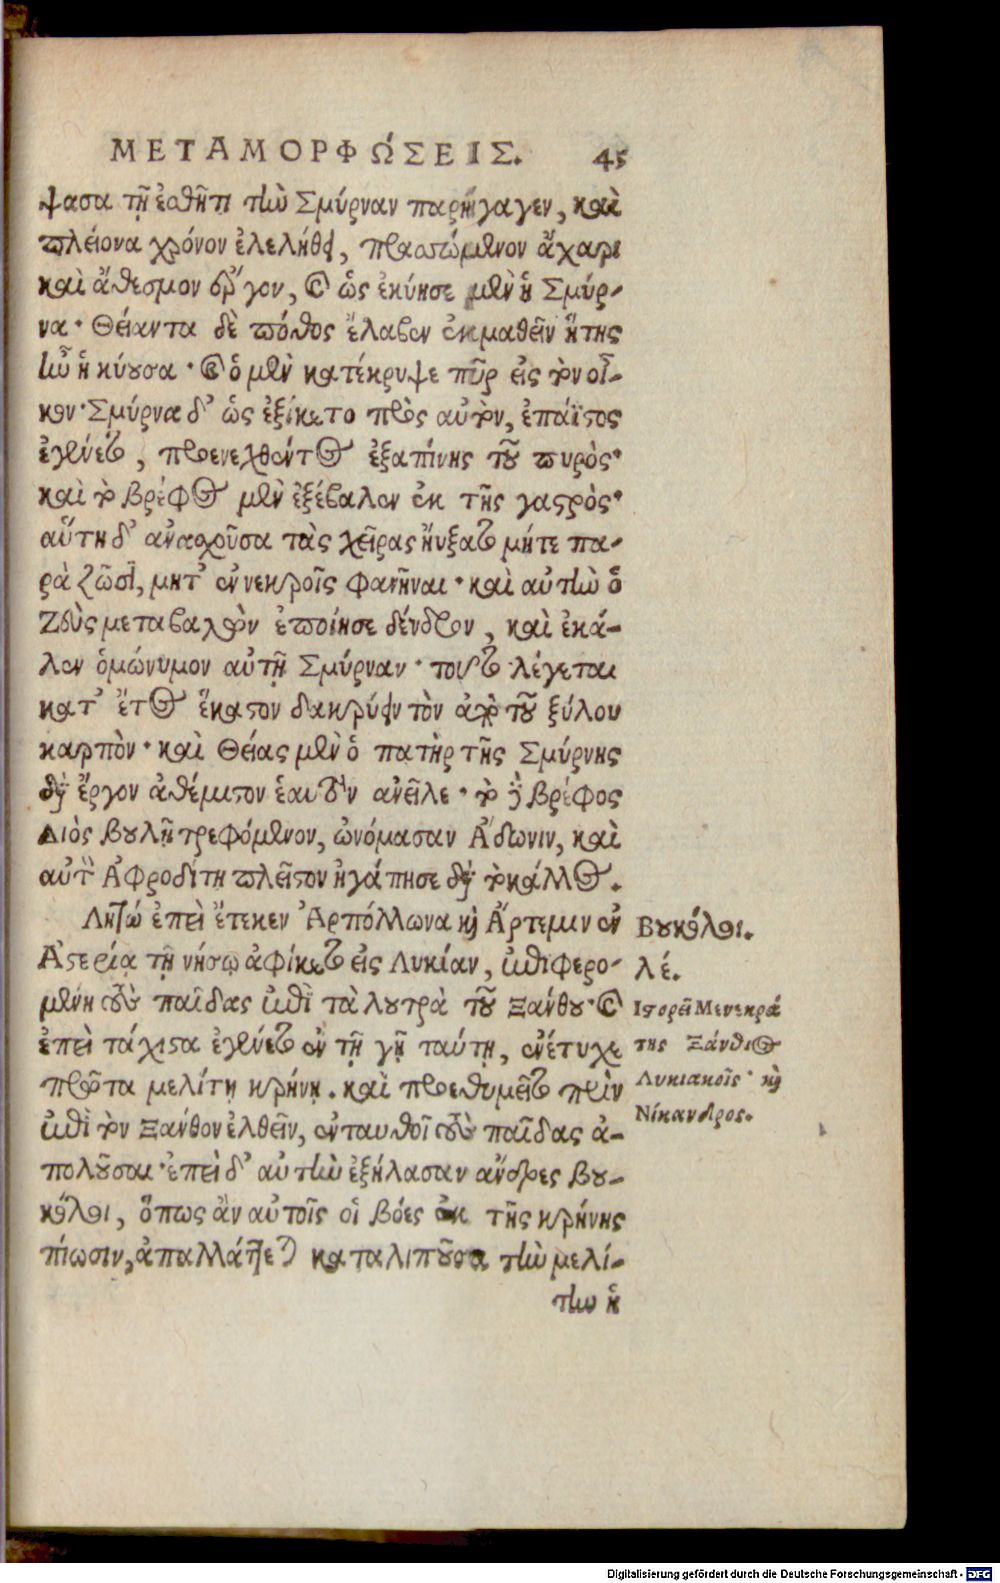 ΜΕΤΑΜΟΡΦΏΣΕΙΣ. 45
ψασα τῇ ἐσθῆτι τὴν Σμύρναν παρήγαγεν, καὶ
πλείονα χρόνον ἐλελήθει, πρασσόμενον ἄχαρι
καὶ ἄθεσμον ἔργον, καὶ ὡς ἐκύησε μὲν ἡ Σμύρ-
να· Θείαντα δὲ πόθος ἔλαβεν ἐκμαθεῖν ἥτης
ἦν ἡ κύουσα· καὶ ὁ μὲν κατέκρυψε πῦρ εἰς τὸν οἶ-
κον· Σμύρνα δ' ὡς ἐξίκετο πρὸς αὐτὸν, ἐπάϊστος
ἐγένετο, προενεχθέντος ἐξαπίνης τοῦ πυρὸς·
καὶ τὸ βρέφος μὲν ἐξέβαλεν ἐκ τῆς γαστρὸς·
αὕτη δ' ἀνασχοῦσα τὰς χεῖρας ἤυξατο μήτε πα-
ρὰ ζῶσι, μητ' ἐν νεκροῖς φανῆναι· καὶ αὐτὴν ὁ
Ζεὺς μεταβαλὼν ἐποίησε δένδρον, καὶ ἐκά-
λεν ὁμώνυμον αὐτῇ Σμύρναν· τοῦτο λέγεται
κατ' ἔτος ἕκαστον δακρύειν τὸν ἀπὸ τοῦ ξύλου
καρπὸν· καὶ Θείας μὲν ὁ πατὴρ τῆς Σμύρνης
διὰ ἔργον ἀθέμιτον ἑαυτὸν ἀνεῖλε· τὸ δὲ βρέφος
Διὸς βουλῇ τρεφόμενον, ὠνόμασαν Ἄδωνιν, καὶ
αὐτὸν Ἀφροδίτη πλεῖστον ἠγάπησε διὰ τὸ κάλλος.
Λητώ ἐπεὶ ἔτεκεν Ἀρπόλλωνα καὶ Ἄρτεμιν ἐν
Ἀστερίᾳ τῇ νήσῳ ἀφίκετο εἰς Λυκίαν, ἐπιφερο-
μένη τοὺς παῖδας ἐπὶ τὰ λουτρὰ τοῦ Ξάνθου· καὶ
ἐπεὶ τάχιστα ἐγένετο ἐν τῇ γῇ ταύτῃ, ἐνέτυχε
πρῶτα μελίτῃ κρήνῃ. καὶ προεθυμεῖτο πρὶν
ἐπὶ τὸν Ξάνθον ἐλθεῖν, ἐνταυθοῖ τοὺς παῖδας ἀ-
πολοῦσαι· ἐπεὶ δ' αὐτὴν ἐξήλασαν ἄνδρες βου-
κόλοι, ὅπως ἂν αὐτοῖς οἱ βόες ἐκ τῆς κρήνης
πίωσιν, ἀπαλλάττεται καταλιποῦσα τὴν μελί-
την ἡ
Βουκόλοι.
λέ.
Ιστορεῖ Μενεκρά
της Ξάνθιος
Λυκιακοῖς· καὶ
Νίκανδρος.
Digitalisierung gefördert durch die Deutsche Forschungsgemeinschaft - DFG